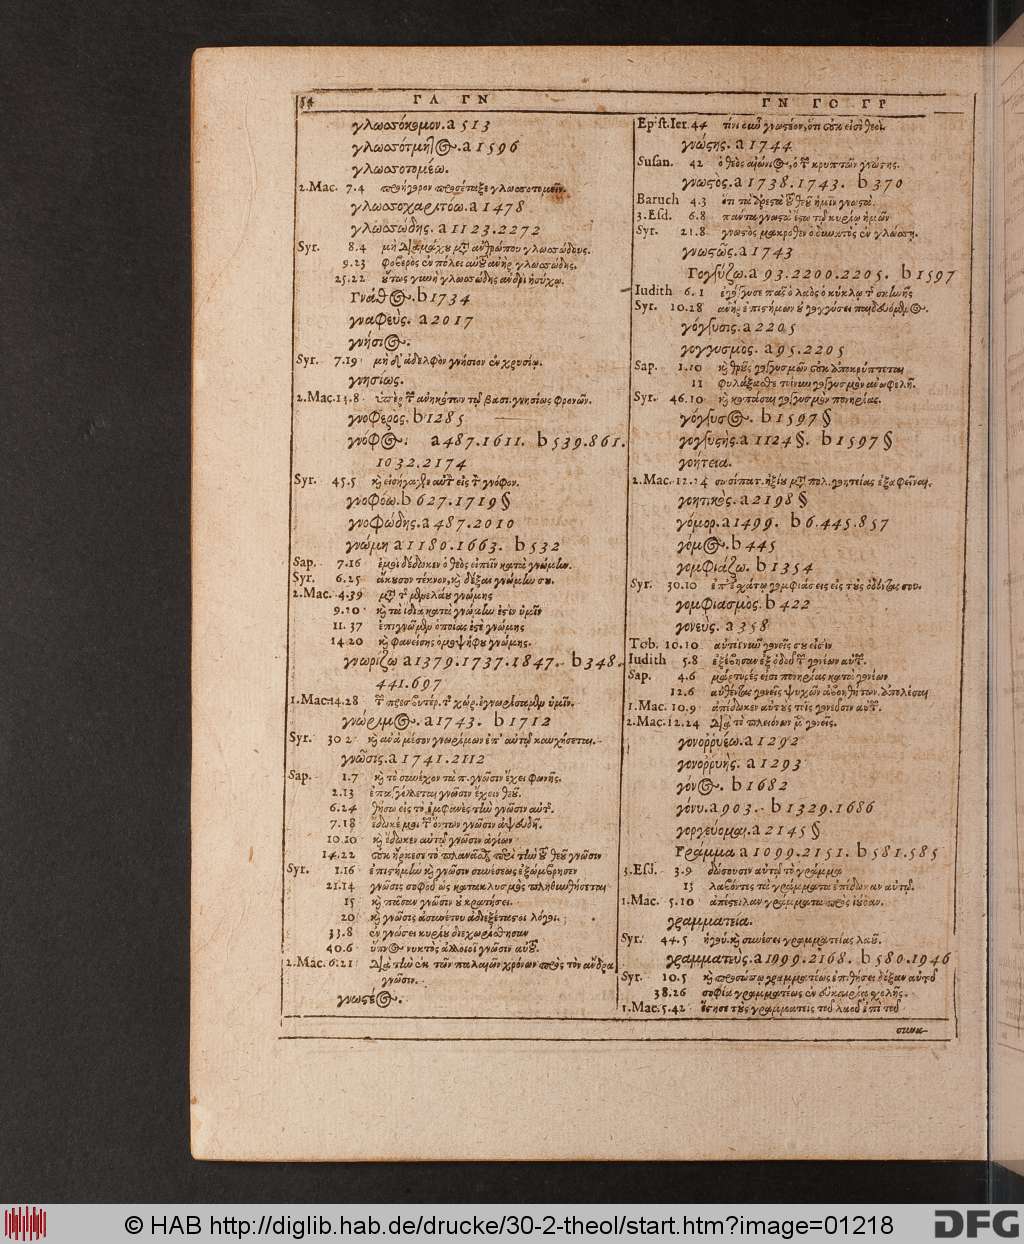 84 ΓΛ ΓΝ
γλωσσόκομον. a 513
γλωσσότμητος. a 1596
γλωσσοτομέω.
2. Mac. 7.4 προήγορον προσέταξε γλωσσοτομεῖν.
γλωσσοχαριτόω. a 1478
γλωσσώδης. a 1123. 2272
Syr. 8.4 μὴ διαμάχου μετὰ ἀνθρώπου γλωσσώδους.
9.23 φοβερὸς ἐν πόλει αὐτοῦ ἀνὴρ γλωσσώδης.
25.22 οὕτως γυνὴ γλωσσώδης ἀνδρὶ ἡσύχῳ.
Γνάθος. b 1734
γναφεύς. a 2017
γνήσιος.
Syr. 7.19 μὴ δὲ ἀδελφὸν γνήσιον ἐν χρυσίῳ.
γνησίως.
2. Mac. 14.8 ὑπὲρ τῶν ἀνηκόντων τῷ βασι. γνησίως φρονῶν.
γνοφερος. b 1285
γνόφος. a 487. 1611. b 539. 861.
1032. 2174
Syr. 45.5 καὶ εἰσήγαγεν αὐτὸν εἰς τὸν γνόφον.
γνοφόω. b 627. 1719 §
γνοφώδης. a 487. 2010
γνώμη a 1180. 1663. b 532
Sap. 7.16 ἐμοὶ δέδωκεν ὁ θεὸς εἰπεῖν κατὰ γνώμην.
Syr. 6.25 ἄκουσον τέκνον, καὶ δέξαι γνώμην μου.
2. Mac. 4.39 μετὰ τῆς Μενελάου γνώμης
9.20 καὶ τὰ ἴδια κατὰ γνώμην ἐστὶν ὑμῖν
11.37 ἐπιγνῶμεν ὁποίας ἐστὲ γνώμης
14.20 καὶ φανείσης ὁμοψήφου γνώμης.
γνωρίζω a 1379. 1737. 1847. b 348.
441. 697
1. Mac. 14.28 τῶν πρεσβυτέρ. τῆς χώρ. ἐγνωρίσαμεν ὑμῖν.
γνώριμος. a 1743. b 1712
Syr. 30.2 καὶ ἀνὰ μέσον γνωρίμων ἐπ' αὐτῷ καυχήσεται.
γνῶσις. a 1741. 2112
Sap. 1.7 καὶ τὸ συνέχον τὰ π. γνῶσιν ἔχει φωνῆς.
2.13 ἐπαγγέλλεται γνῶσιν ἔχειν θεοῦ.
6.24 θήσω εἰς τὸ ἐμφανὲς τὴν γνῶσιν αὐτῆς.
7.18 ἔδωκέ μοι τῶν ὄντων γνῶσιν ἀψευδῆ.
10.10 καὶ ἔδωκεν αὐτῷ γνῶσιν ἁγίων
14.22 οὐκ ἤρκεσε τὸ πλανᾶσθαι περὶ τὴν τοῦ θεοῦ γνῶσιν
Syr. 1.16 ἐπιστήμην καὶ γνῶσιν συνέσεως ἐξώμβρησεν
21.14 γνῶσις σοφοῦ ὡς κατακλυσμὸς πληθυνθήσεται
15 καὶ πᾶσαν γνῶσιν οὐ κρατήσει.
20 καὶ γνῶσις ἀσυνέτου ἀδιεξέταστοι λόγοι.
33.8 ἐν γνώσει κυρίου διεχωρίσθησαν
40.6 ὕπνος νυκτὸς ἀλλοιοῖ γνῶσιν αὐτοῦ.
2. Mac. 6.21 διὰ τὴν ἐκ τῶν παλαιῶν χρόνων πρὸς τὸν ἄνδρα
γνῶσιν.
γνωστέος.
ΓΝ ΓΟ ΓΡ
Epist. Ier. 44 τίνι οὖν γνωστέον, ὅτι οὐκ εἰσὶ θεοί.
γνώστης. a 1744
Susan. 42 ὁ θεὸς αἰώνιος, ὁ τῶν κρυπτῶν γνώστης.
γνωστός. a 1738. 1743. b 370
Baruch 4.3 ὅτι τὰ ἀρεστὰ τοῦ θεοῦ ἡμῖν γνωστά.
3. Esd. 6.8 πάντα γνωστὰ ἔστω τῷ κυρίῳ ἡμῶν
Syr. 21.8 γνωστὸς μακρόθεν ὁ δυνατὸς ἐν γλώσσῃ.
γνωστῶς. a 1743
Γογγύζω. a 93. 2200. 2205. b 1597
Iudith 6.1 ἐγόγγυσε πᾶς ὁ λαὸς ὁ κύκλῳ τῆς σκηνῆς
Syr. 10.28 ἀνὴρ ἐπιστήμων οὐ γογγύσει παιδευόμενος.
γόγγυσις. a 2205
γογγυσμός. a 95. 2205
Sap. 1.10 καὶ θροῦς γογγυσμῶν οὐκ ἀποκρύπτεται
11 φυλάξασθε τοίνυν γογγυσμὸν ἀνωφελῆ.
Syr. 46.10 καὶ κοπάσαι γογγυσμὸν πονηρίας.
γόγγυσος. b 1597 §
γογγυστής. a 1124 §. b 1597 §
γοητεία.
γοητικός. a 2198 §
γόμορ. a 1499. b 6. 445. 857
γόμος. b 445
γομφιάζω. b 1354
Syr. 30.10 ἐπ' ἐσχάτῳ γομφιάσεις εἰς τοὺς ὀδόντας σου.
γομφιασμός. b 422
γονεύς. a 358
Tob. 10.10
Iudith 5.8 ἐξέβησαν ἐξ ὁδοῦ τῶν γονέων αὐτῶν.
Sap. 4.6 μάρτυρές εἰσι πονηρίας κατὰ γονέων
12.6 αὐθέντας γονεῖς ψυχῶν ἀβοηθήτων ἀπολέσαι
1. Mac. 10.9 ἀπέδωκεν αὐτοὺς τοῖς γονεῦσιν αὐτῶν.
2. Mac. 12.24 διὰ τὸ πλειόνων μὲν γονεῖς.
γονοῤῥυέω. a 1292
γονοῤῥυής. a 1293
γόνος. b 1682
γόνυ. a 903. b 1329. 1686
γοργεύομαι. a 2145 §
Γράμμα a 1099. 2151. b 581. 585
3. Esd. 3.9 δώσουσιν αὐτῷ τὸ γράμμα
13 λαβόντες τὰ γράμματα ἐπέδωκαν αὐτῷ.
1. Mac. 5.10 ἀπέστειλαν γράμματα πρὸς ἰούδαν.
γραμματεία.
Syr. 44.5
γραμματεύς. a 1999. 2168. b 580. 1946
Syr. 10.5 καὶ προσώπῳ γραμματέως ἐπιθήσει δόξαν αὐτοῦ
38.26 σοφία γραμματέως ἐν εὐκαιρίᾳ σχολῆς.
1. Mac. 5.42 ἔστησε τοὺς γραμματεῖς τοῦ λαοῦ ἐπὶ τοῦ
© HAB http://diglib.hab.de/drucke/30-2-theol/start.htm?image=01218 DFG